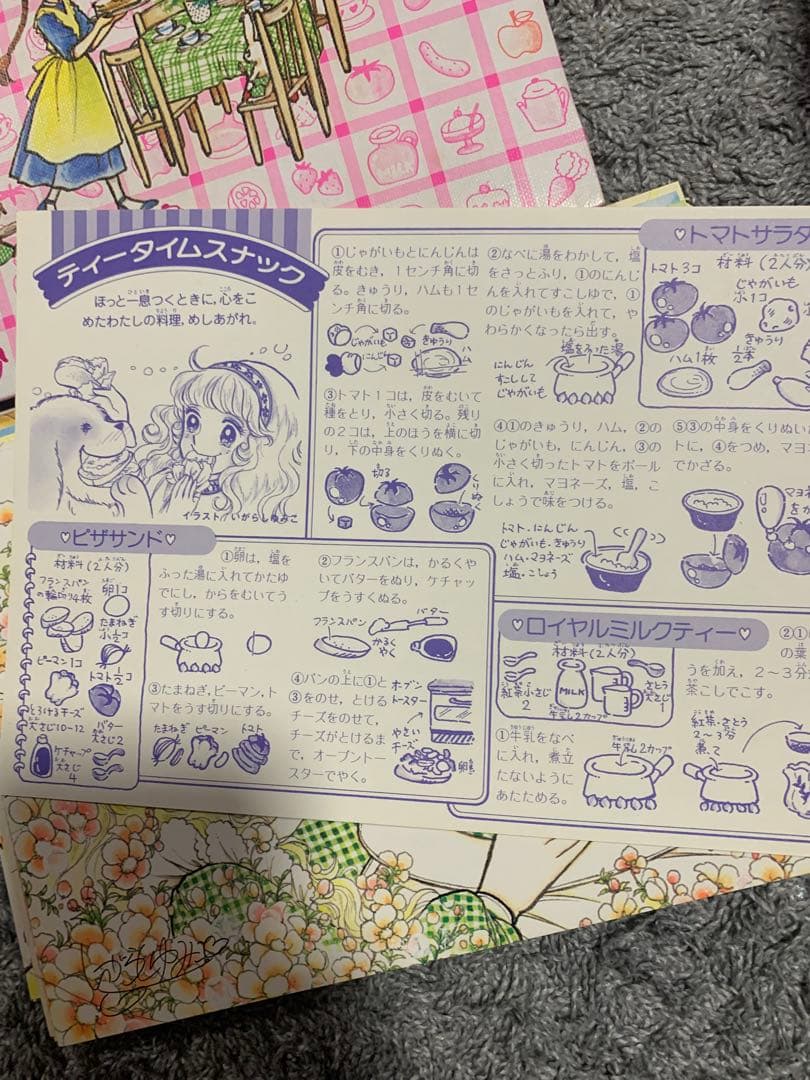 ティータイムスナック
ほっと一息つくときに，心をこ
めたわたしの料理，めしあがれ。
イラスト/いがらしゆみこ
♡トマトサラダ
材料(2人分)
トマト3コ
じゃがいも
小1コ
きゅうり
1/2本
ハム1枚
①じゃがいもとにんじんは
皮をむき，1センチ角に切
る。きゅうり，ハムも1セ
ンチ角に切る。
じゃがいも
きゅうり
にんじん
ハム
②なべに湯をわかして，塩
をさっとふり，①のにんじ
んを入れてすこしゆで，①
のじゃがいもを入れて，や
わらかくなったら出す。
塩をふった湯
にんじん
すこしして
じゃがいも
③トマト1コは，皮をむいて
種をとり，小さく切る。残り
の2コは，上のほうを横に切
り，下の中身をくりぬく。
切る
くりぬく
④①のきゅうり，ハム，②の
じゃがいも，にんじん，③の
小さく切ったトマトをボール
に入れ，マヨネーズ，塩，こ
しょうで味をつける。
トマト・にんじん
じゃがいも・きゅうり
ハム・マヨネーズ
塩・こしょう
⑤③の中身をくりぬい
トに，④をつめ，マヨ
でかざる。
マヨネ
をか
♡ピザサンド♡
材料(2人分)
フランスパン
の輪切り4枚
卵1コ
たまねぎ
小1/2コ
ピーマン1コ
トマト1/2コ
とろけるチーズ
大さじ10〜12
バター
大さじ2
ケチャップ
大さじ
4
①卵は，塩を
ふった湯に入れてかたゆ
でにし，からをむいてう
す切りにする。
②フランスパンは，かるくや
いてバターをぬり，ケチャッ
プをうすくぬる。
フランスパン
バター
かるく
やく
③たまねぎ，ピーマン，ト
マトをうす切りにする。
たまねぎ
ピーマン
トマト
④パンの上に①と
③をのせ，とける
チーズをのせて，
チーズがとけるま
で，オーブントー
スターでやく。
オーブン
トースター
やさい
チーズ
卵
♡ロイヤルミルクティー♡
材料(2人分)
紅茶小さじ
2
MILK
牛乳2カップ
さとう
大さじ
1
①牛乳をなべ
に入れ，煮立
たないように
あたためる。
牛乳2カップ
②①
の葉
うを加え，2〜3分
茶こしでこす。
紅茶・さとう
2〜3分
煮て